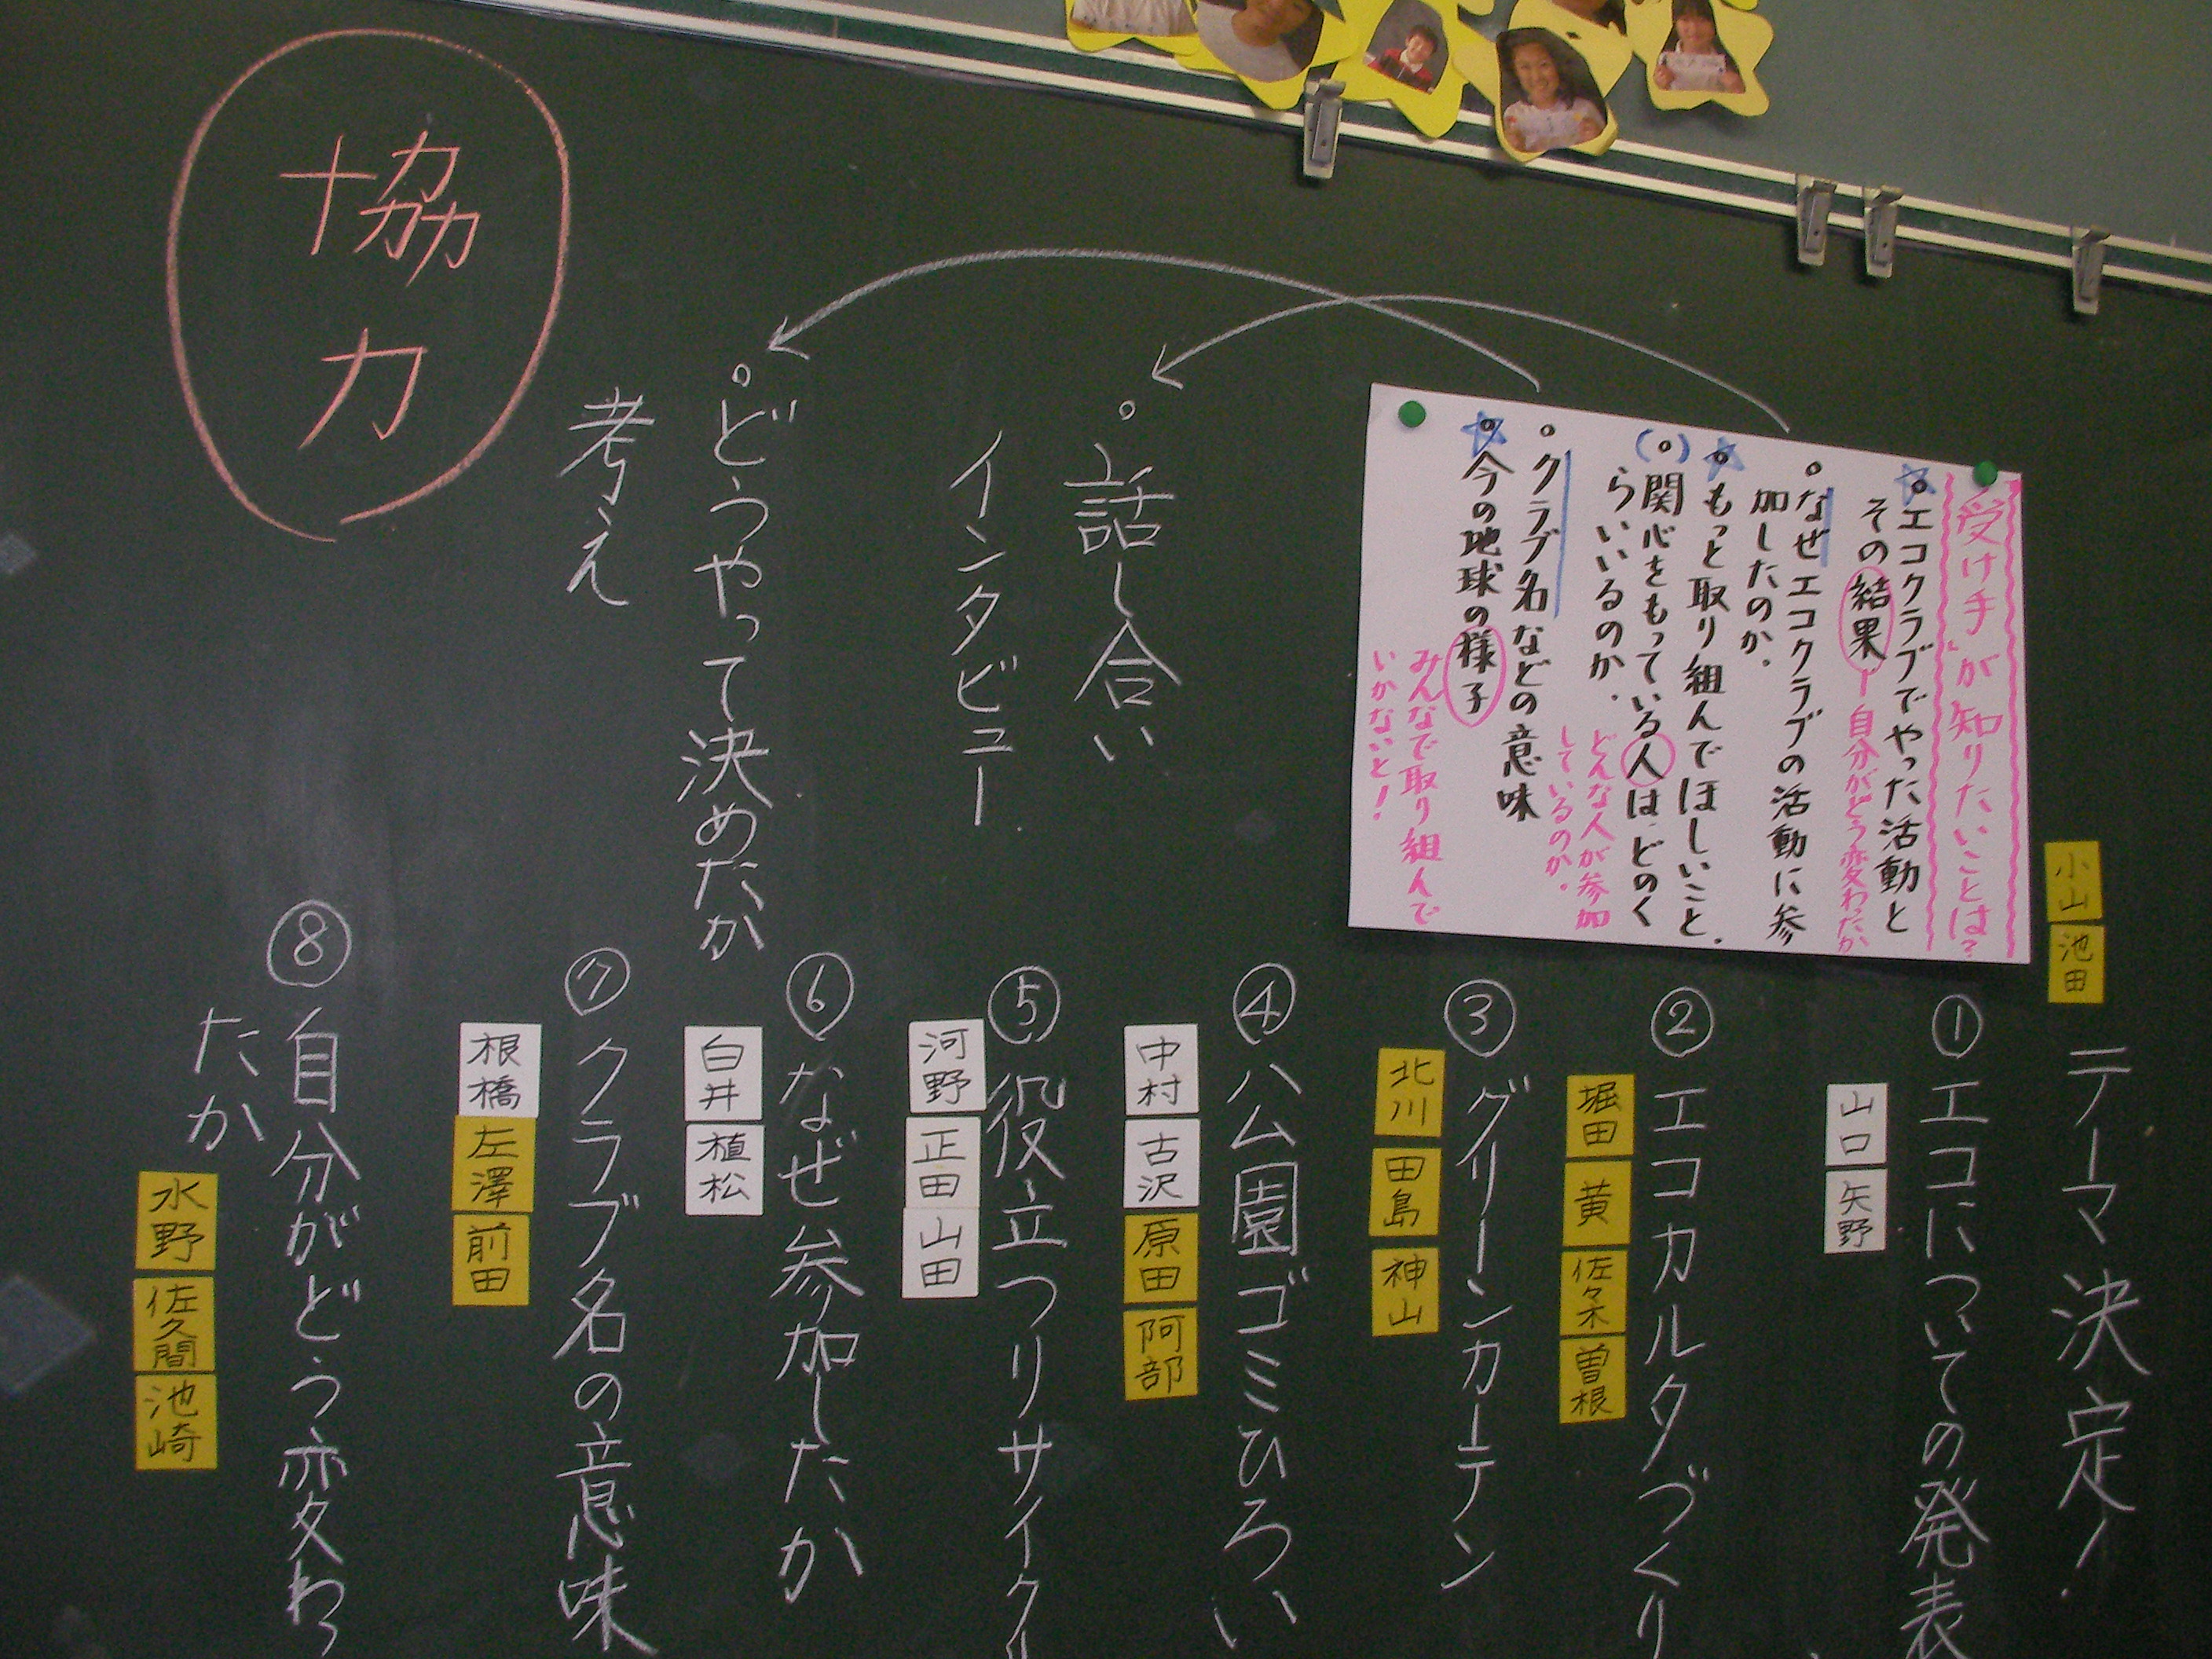 小山
池田
テーマ決定！
受け手が知りたいことは？
エコクラブでやった活動と
その結果ー自分がどう変わったか
なぜエコクラブの活動に参
加したのか。
もっと取り組んでほしいこと。
(。)関心をもっている人は、どのく
らいいるのか。どんな人が参加
しているのか。
クラブ名などの意味
今の地球の様子
みんなで取り組んで
いかないと！
。話し合い
インタビュー
。どうやって決めたか
考え
協力
①エコについての発表
山口
矢野
②エコカルタづくり
堀田
黄
佐々木
曽根
③グリーンカーテン
北川
田島
神山
④ハム園ゴミひろい
中村
古沢
原田
阿部
⑤役立つリサイクル
河野
正田
山田
⑥なぜ参加したか
白井
植松
⑦クラブ名の意味
根橋
左澤
前田
⑧自分がどう変わっ
たか
水野
佐久間
池崎